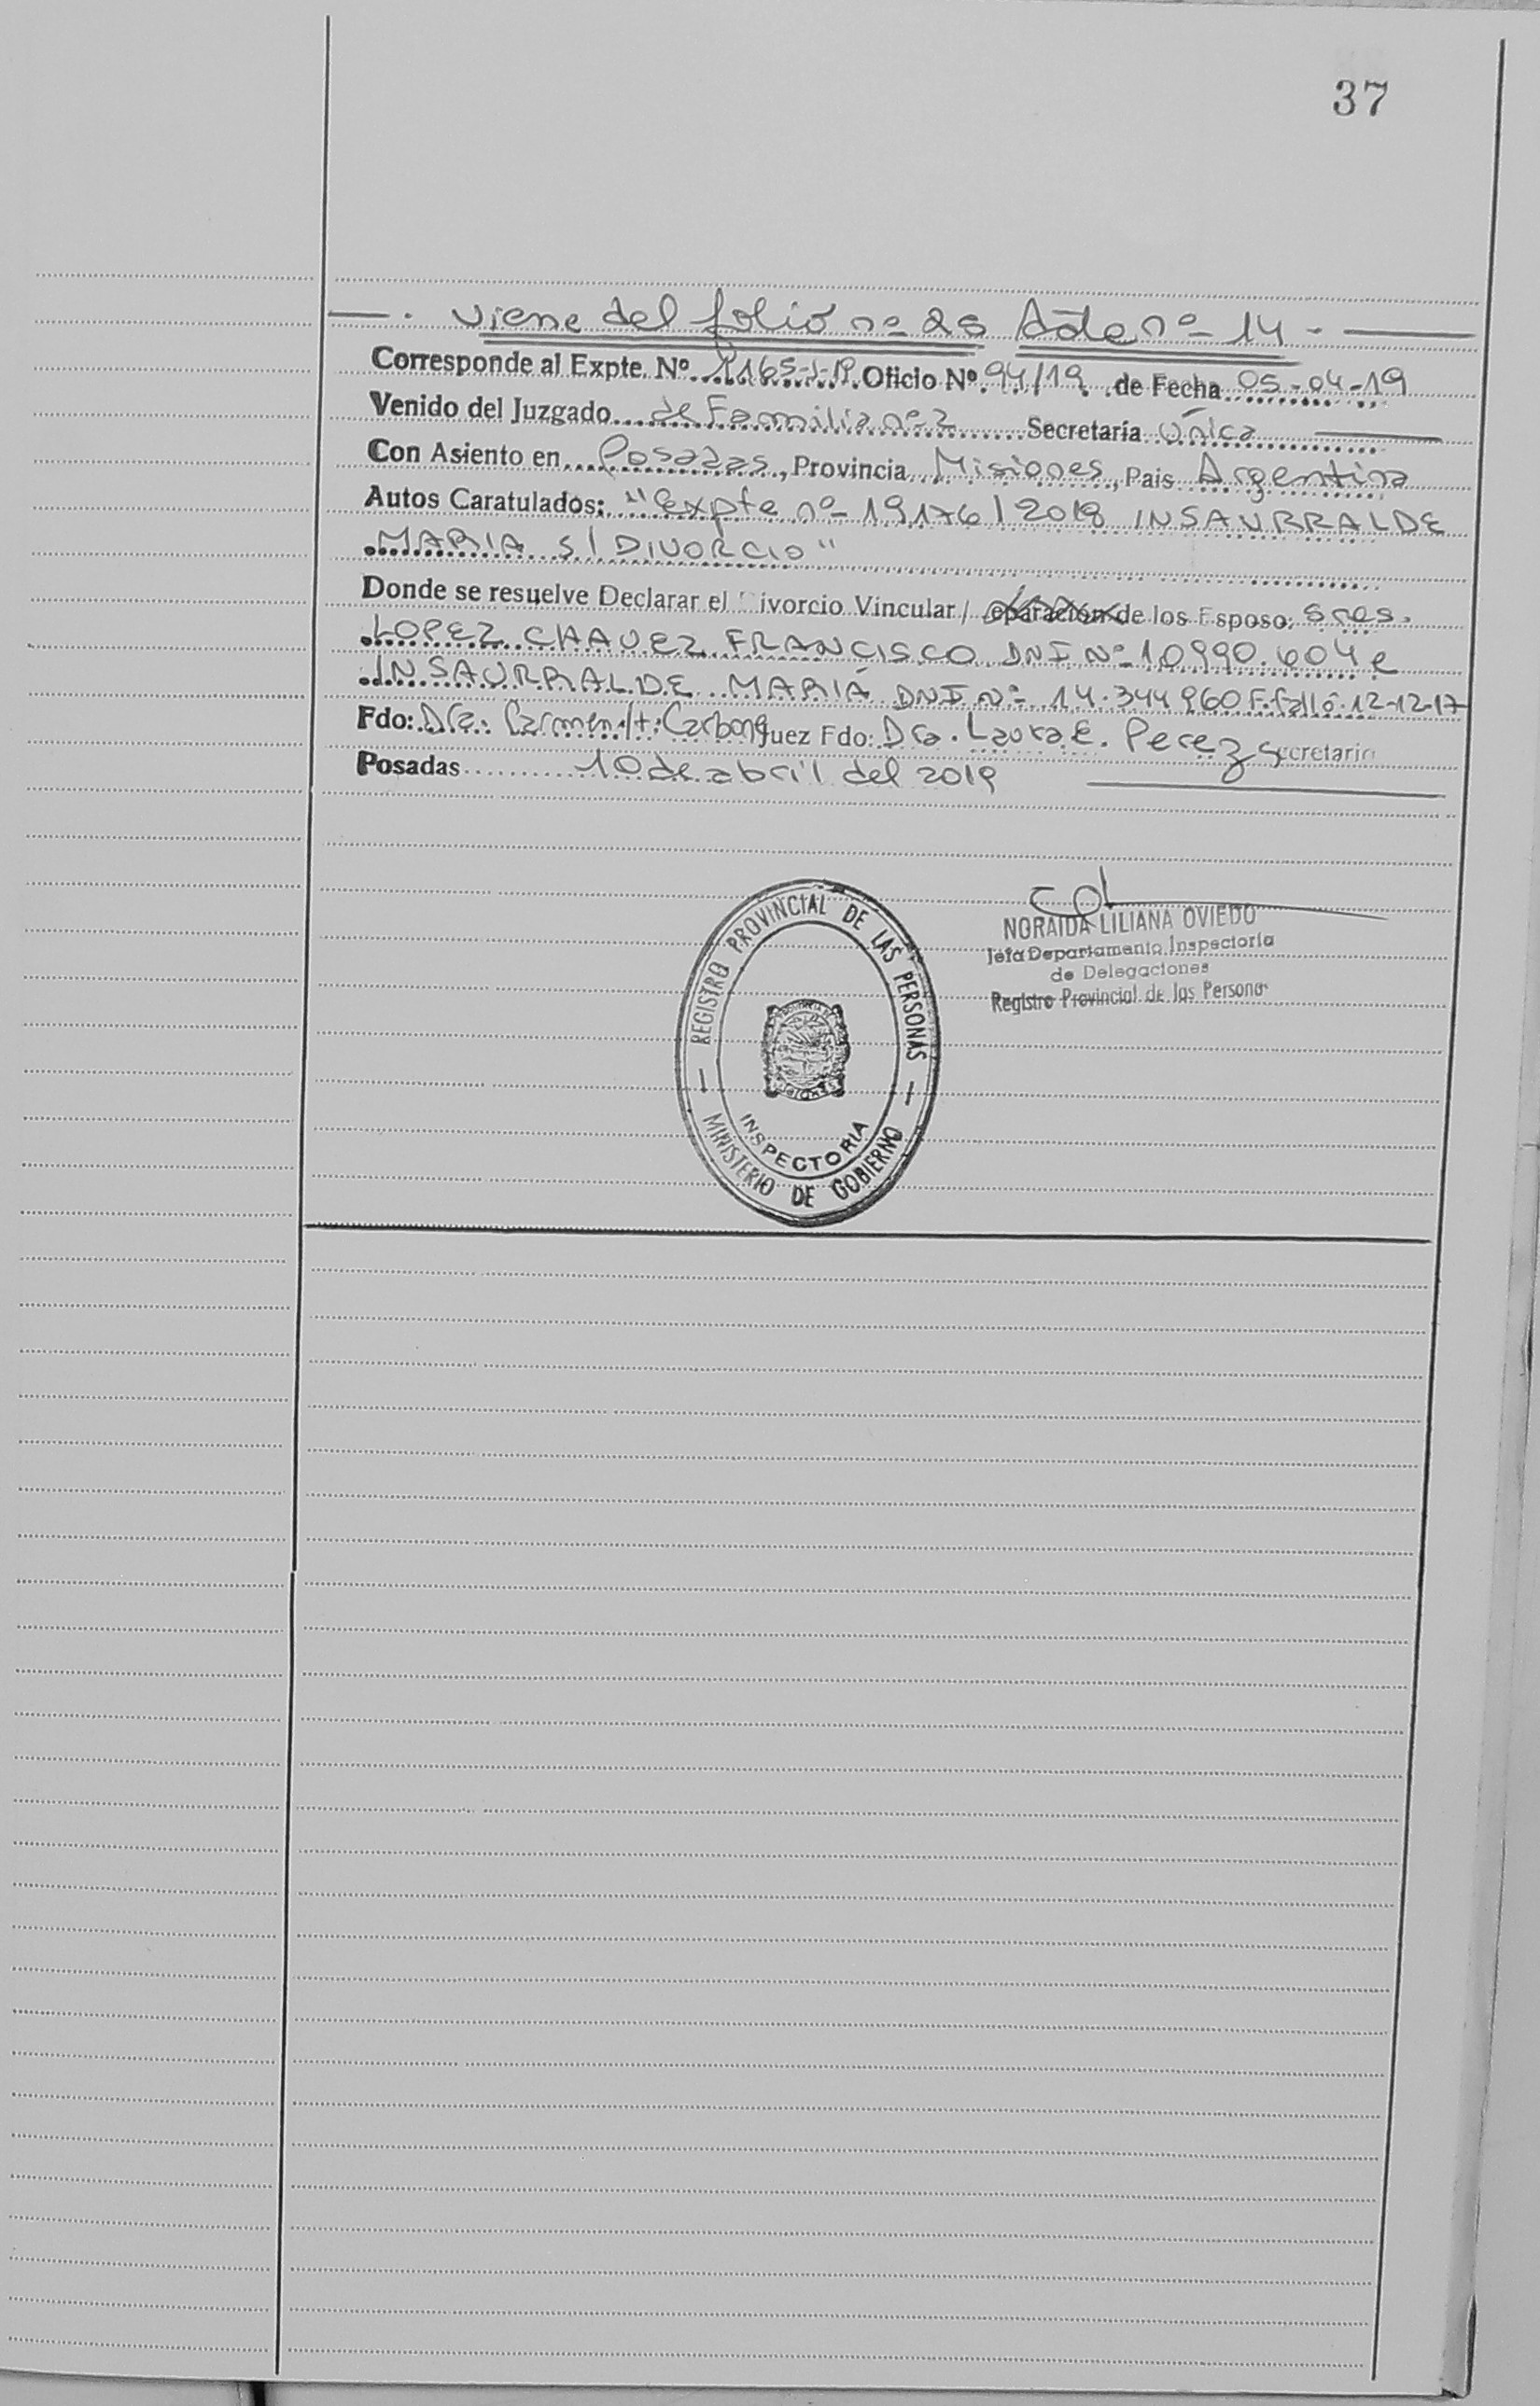 37
—. Viene del folio nº 25 Acta nº 14 . —
Corresponde al Expte. Nº 1165-J-19. Oficio Nº 94/19 de Fecha 05-04-19
Venido del Juzgado de Familia nº 2 Secretaría única —
Con Asiento en Posadas, Provincia Misiones, Pais Argentina
Autos Caratulados: "Expte nº 19176/2018 INSAURRALDE
MARIA S/ DIVORCIO"
Donde se resuelve Declarar el Divorcio Vincular / eparación de los Esposo: Sres.
LOPEZ CHAVEZ FRANCISCO DNI Nº 10990.604 e
INSAURRALDE MARIA DNI Nº 14.344960 F. falló 12-12-17
Fdo: Dra. Carmen H. Carbone Juez Fdo: Dra. Laura E. Perez Secretario
Posadas 10 de abril del 2019 —
NORAIDA LILIANA OVIEDO
Jefa Departamento Inspectoría
de Delegaciones
Registro Provincial de las Personas
REGISTRO PROVINCIAL DE LAS PERSONAS
INSPECTORIA
MINISTERIO DE GOBIERNO